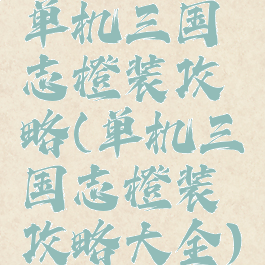 单机三国
志橙装攻
略(单机三
国志橙装
攻略大全)